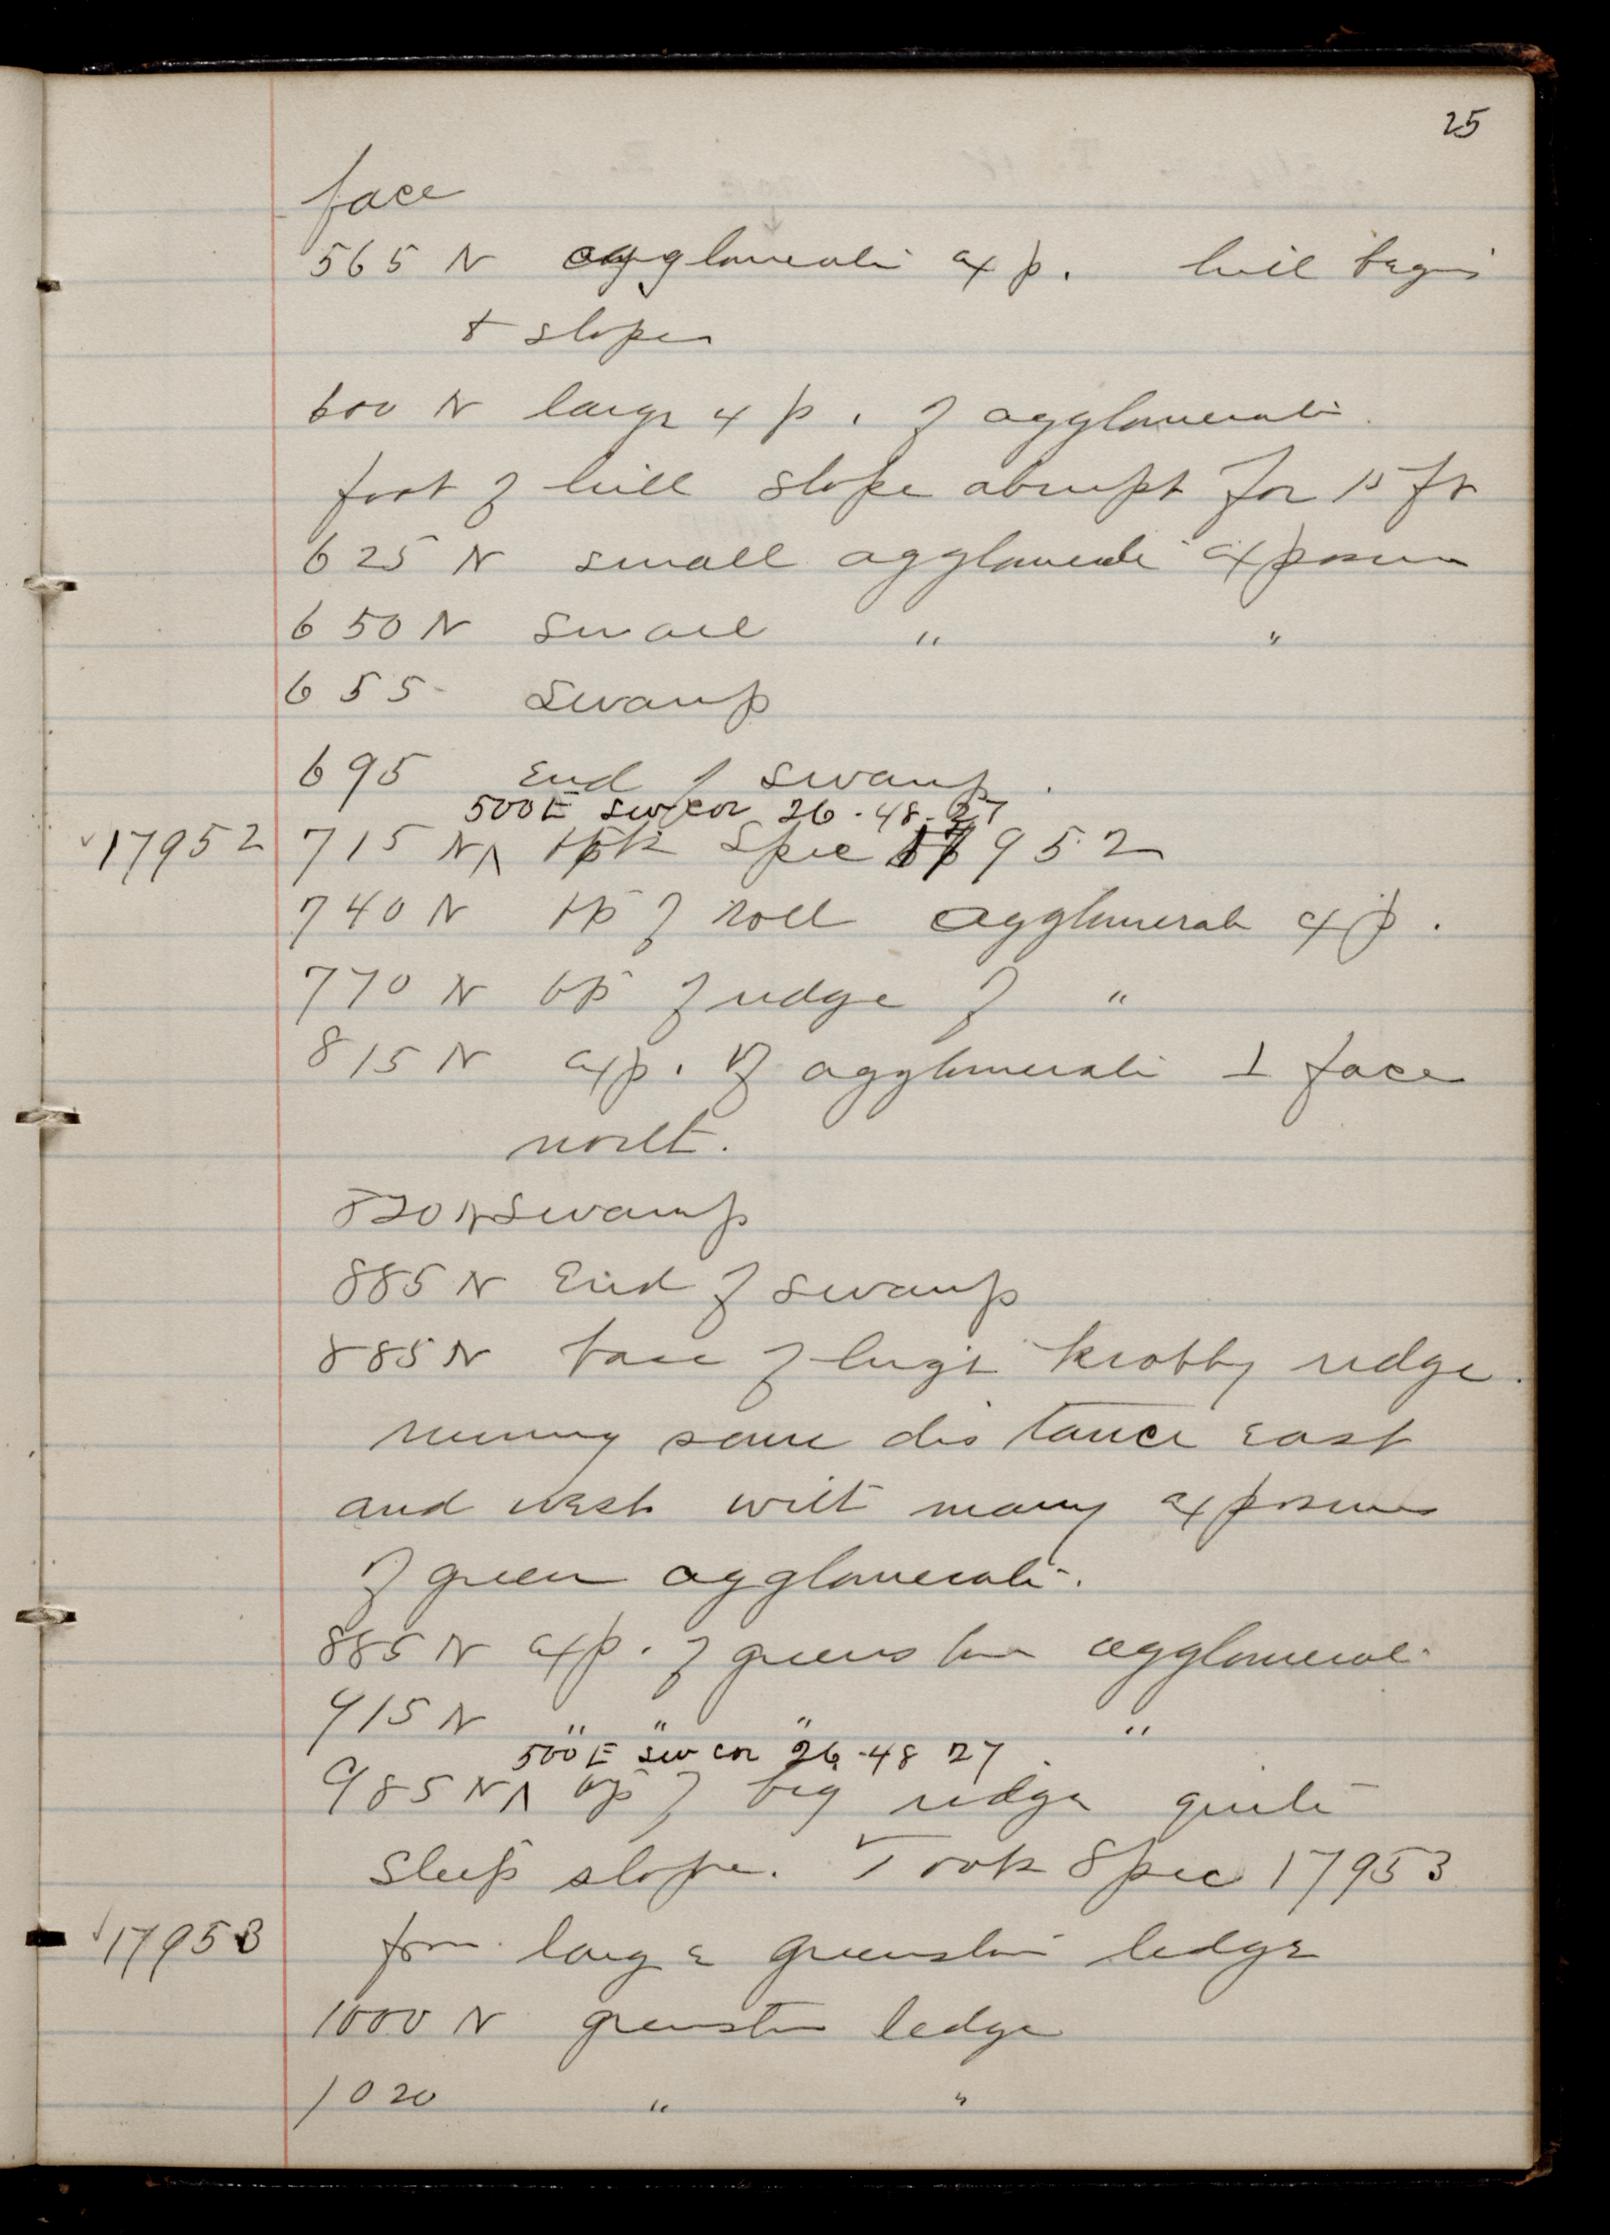 25
face
565 N agglomerate exp. hill begins
& slopes
600 N large exp. of agglomerate
foot of hill slope abrupt for 15 ft
625 N small agglomerate exposure
650 N small " "
655 swamp
695 End of swamp.
500 E SW cor 26-48-27
17952 715 N ^ Spec 17952
740 N top of roll agglomerate exp.
770 N top of ridge of "
815 N exp. of agglomerate ⊥ face
north.
820 N Swamp
885 N End of swamp
885 N base of large knobby ridge.
running some distance east
and west with many exposures
of green agglomerate.
885 N exp. of greenstone agglomerate
915 N " " " "
500 E SW cor 26-48 27
985 N ^ top of big ridge quite
steep slope. Took Spec 17953
17953 from large greenstone ledge
1000 N greenstone ledge
1020 " "